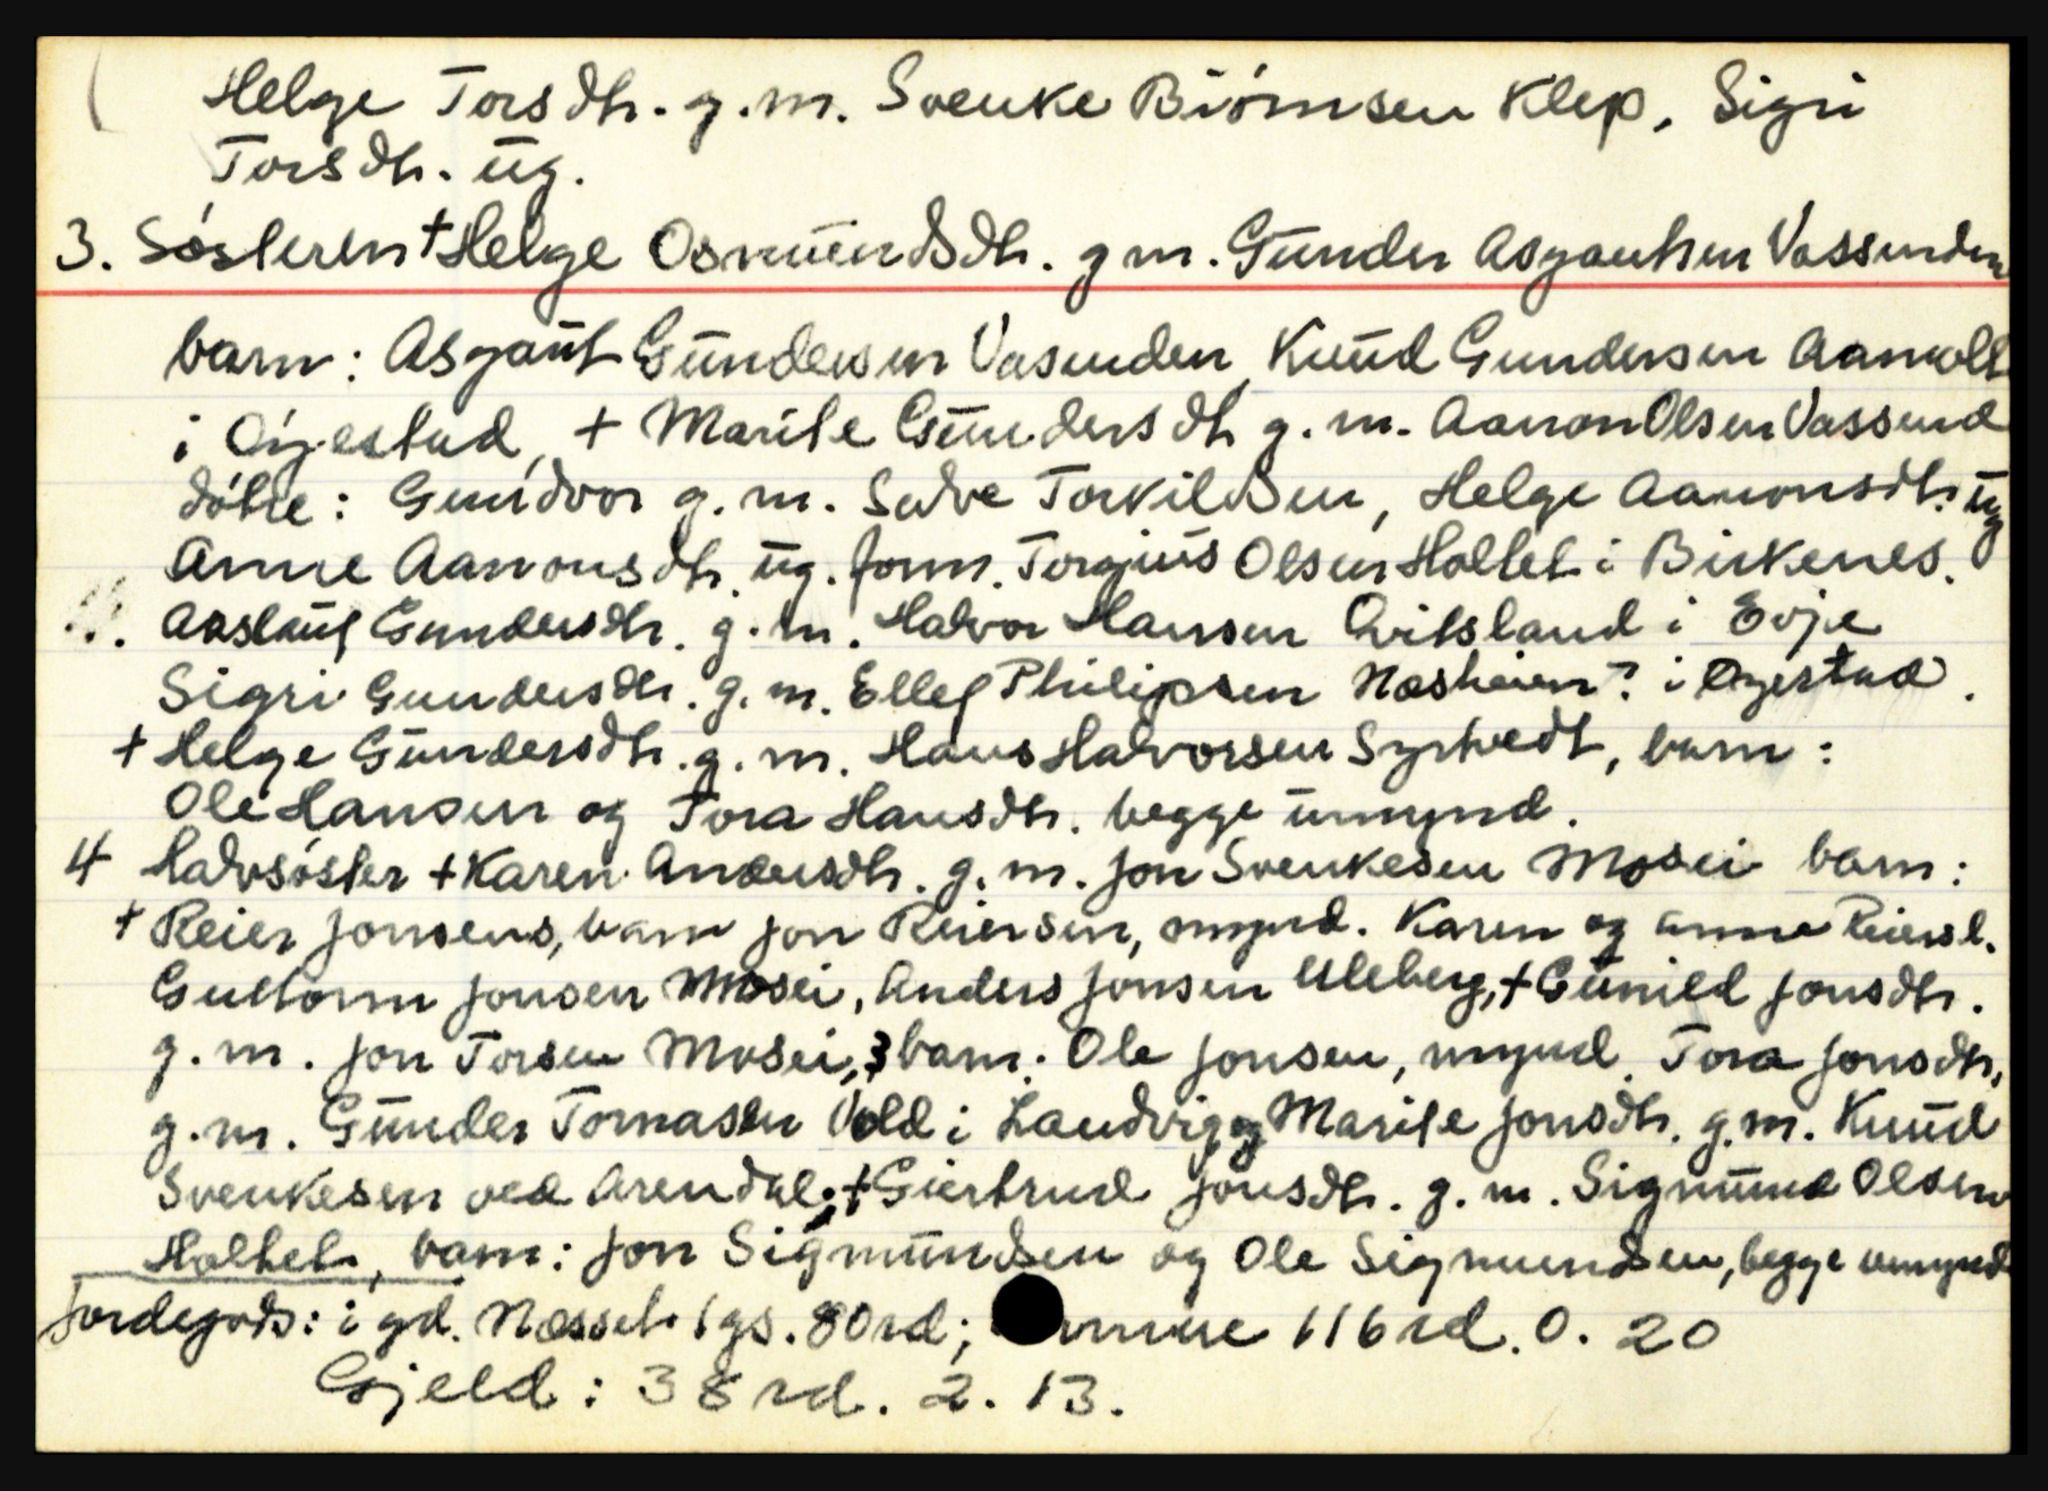 Helge Torsdtr. g.m. Svenke Biörnsen Klep, Sigri
Torsdtr. ug.
3. Søsteren + Helge Osmundsdtr. gm. Gunder Asgautsen Vassenden
barn: Asgaut Gundersen Vasenden, Knud Gundersen Aamolt
i Øyestad, + Marite Gundersdtr g.m. Aanon Olsen Vassend
døtre: Gundvor g.m. Salve Torkildsen, Helge Aanonsdtr. ug
Anne Aanonsdtr. ug. form. Torgius Olsen Holtet i Birkenes.
Aaslaug Gundersdtr. g.m. Halvor Hansen Qvitsland i Evje
Sigri Gundersdtr. g.m. Ellef Philipsen Næsheien? i Øyestad.
+ Helge Gundersdtr. g.m. Hans Halvorsen Syrtvedt, barn:
Ole Hansen og Tora Hansdtr. begge umynd.
4 Halvsøster + Karen Andersdtr. g.m. Jon Svenkesen Mosei barn:
+ Reier Jonsens, barn Jon Reiersen, mynd. Karen og Anne Reiersd.
Guttorm Jonsen Mosei, Anders Jonsen Uleberg, + Gunild Jonsdtr.
g.m. Jon Torsen Mosei, 3 barn: Ole Jonsen, mynd. Tora Jonsdtr,
g.m. Gunder Tomasen Vold i Landvig og Marite Jonsdtr. g.m. Knud
Svenkesen ved Arendal, + Giertrud Jonsdtr. g.m. Sigmund Olsen
Holtet, barn: Jon Sigmundsen og Ole Sigmundsen, begge umynd
Jordegods: i gd. Næsset 1 gs. 80 rd; 116 rd. 0. 20
Gjeld: 38 rd. 2. 13.